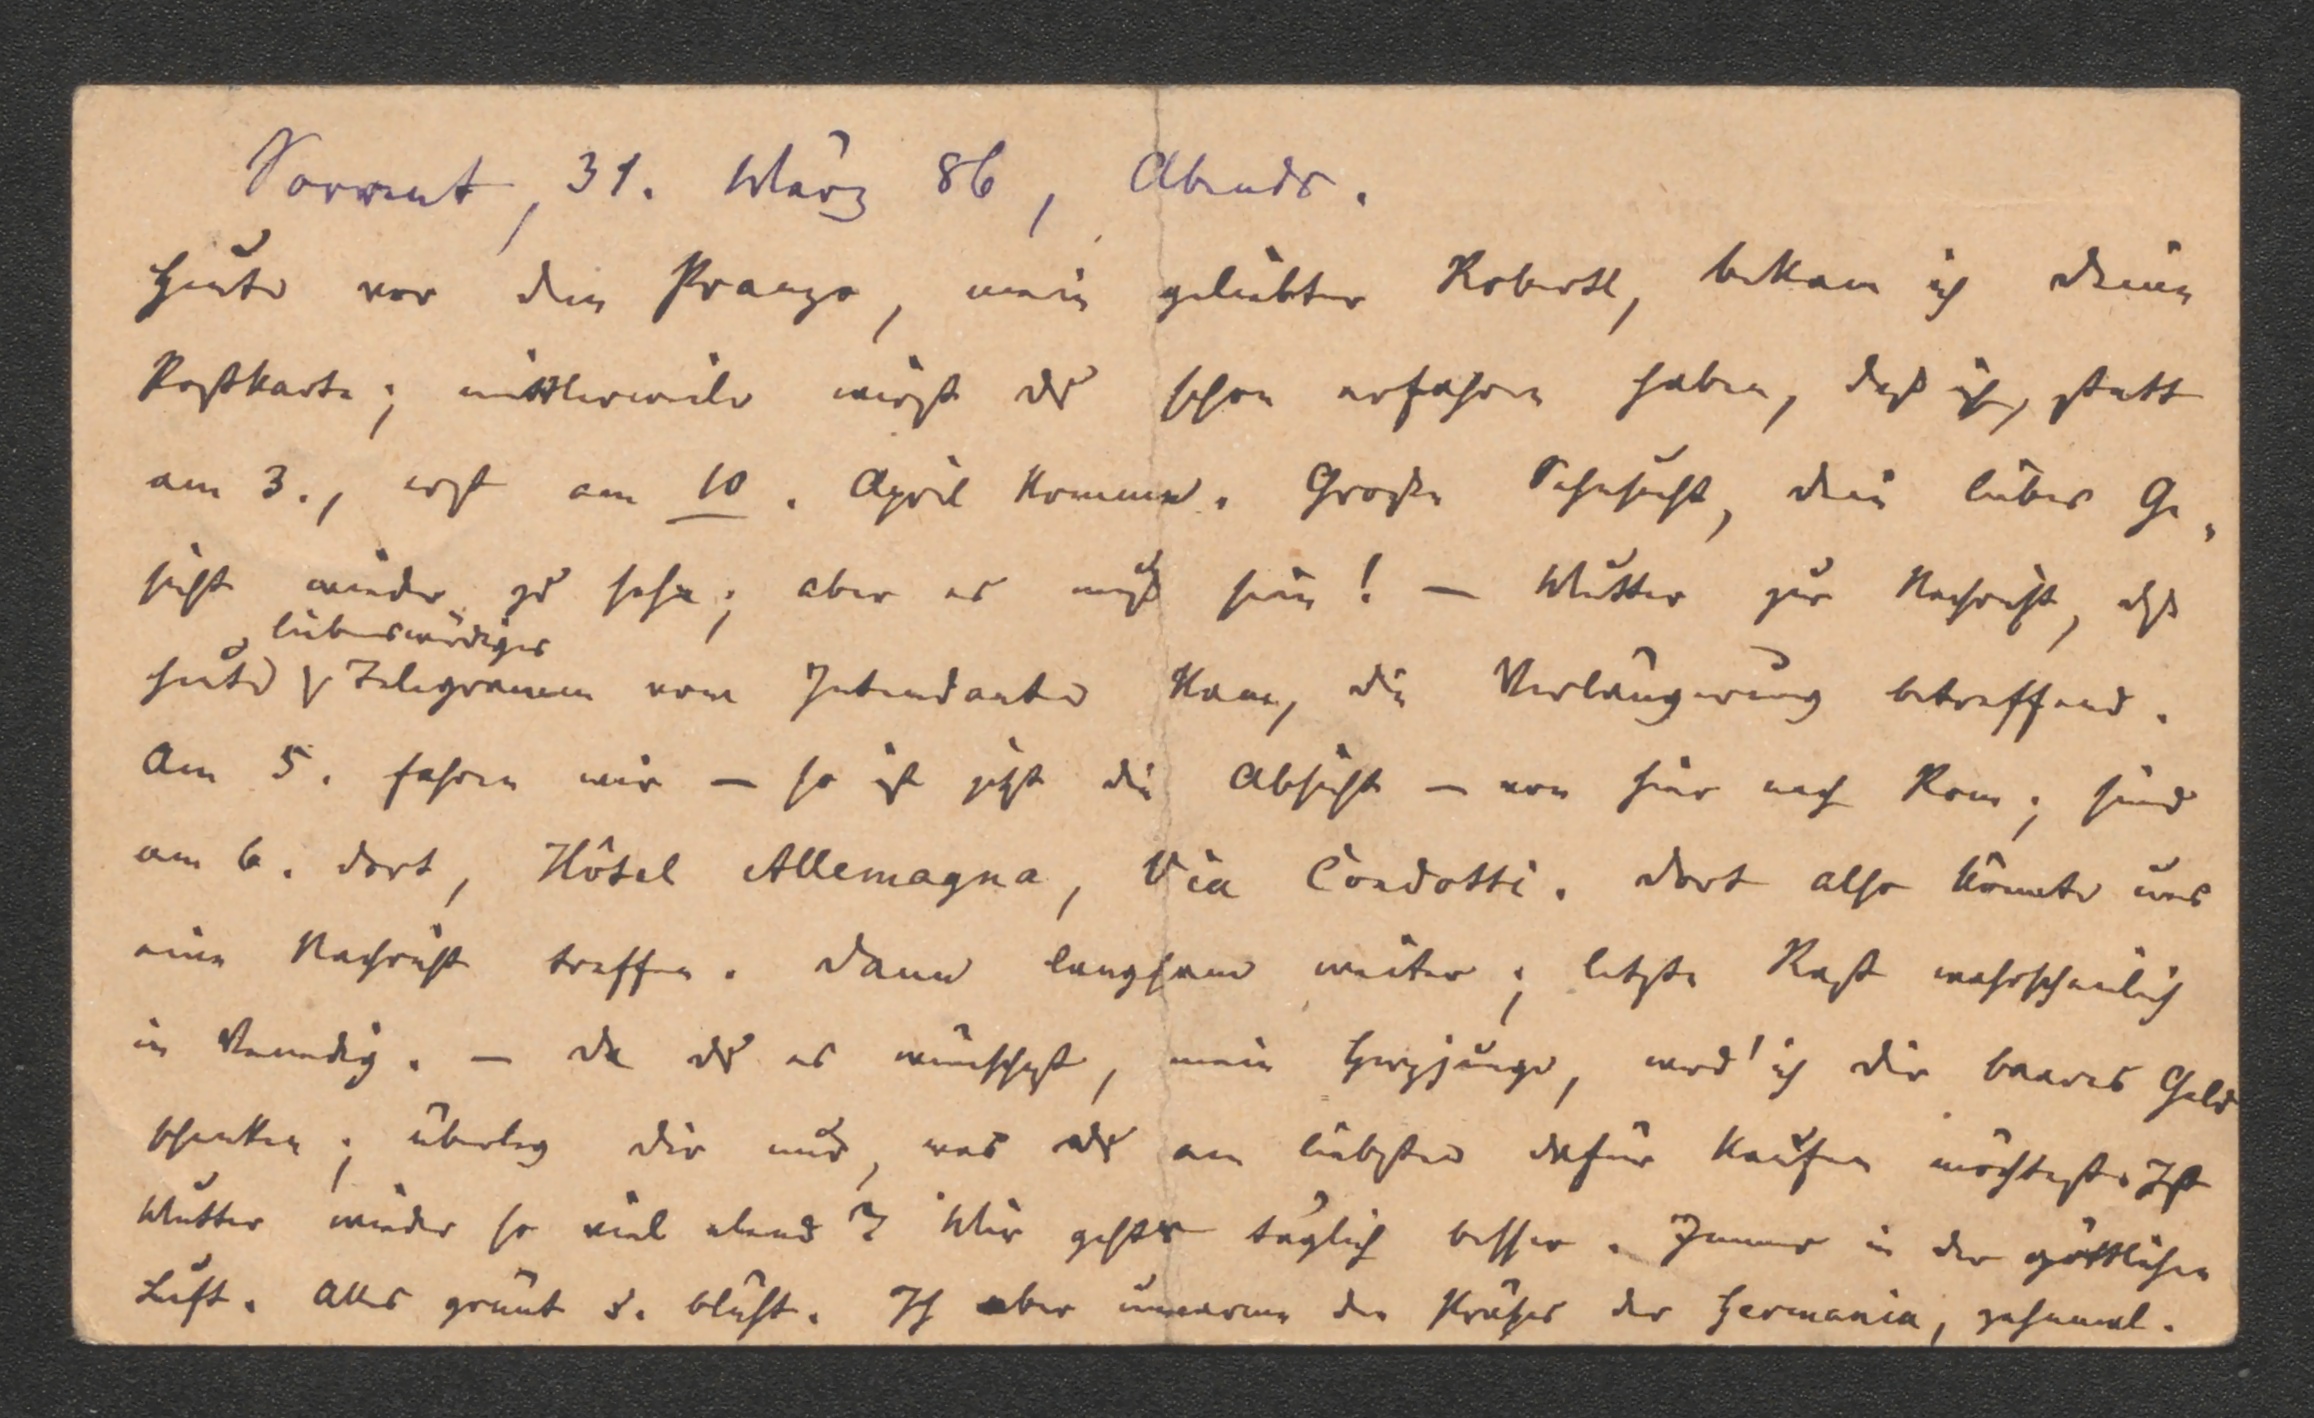 Sorrent, 31. März 86, Abends.
Heute vor dem Pranzo, mein geliebter Robertl, bekam ich deine
Postkarte; mittlerweile wirst du schon erfahren haben, daß ich, statt
am 3., erst am 10. April komme. Große Sehnsucht, dein liebes Ge-
sicht wieder zu sehn; aber es muß sein! – Mutter zur Nachricht, daß
liebenswürdiges
heute Telegramm vom Intendanten kam, die Verlängerung betreffend.
Am 5. fahren wir – so ist jetzt die Absicht – von hier nach Rom; sind
am 6. dort, Hôtel Allemagna, Via Condotti. Dort also könnte uns
eine Nachricht treffen. Dann langsam weiter; letzte Rast wahrscheinlich
in Venedig. – Da du es wünschest, mein Herzjunge, werd' ich dir baares Geld
schenken; überleg dir nur, was du am liebsten dafür kaufen möchtest. Ist
Mutter wieder so viel elend? Mir geht's täglich besser. Immer in der göttlichen
Luft. Alles grünt u. blüht. Ich aber umarme den der Germania, zehnmal.